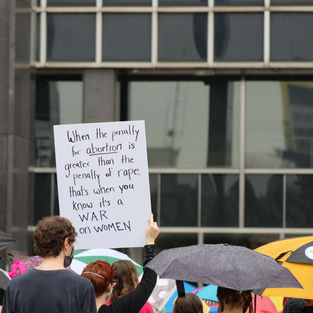 When the penalty
for abortion is
greater than the
penalty of rape,
that's when you
know it's a
WAR
on WOMEN